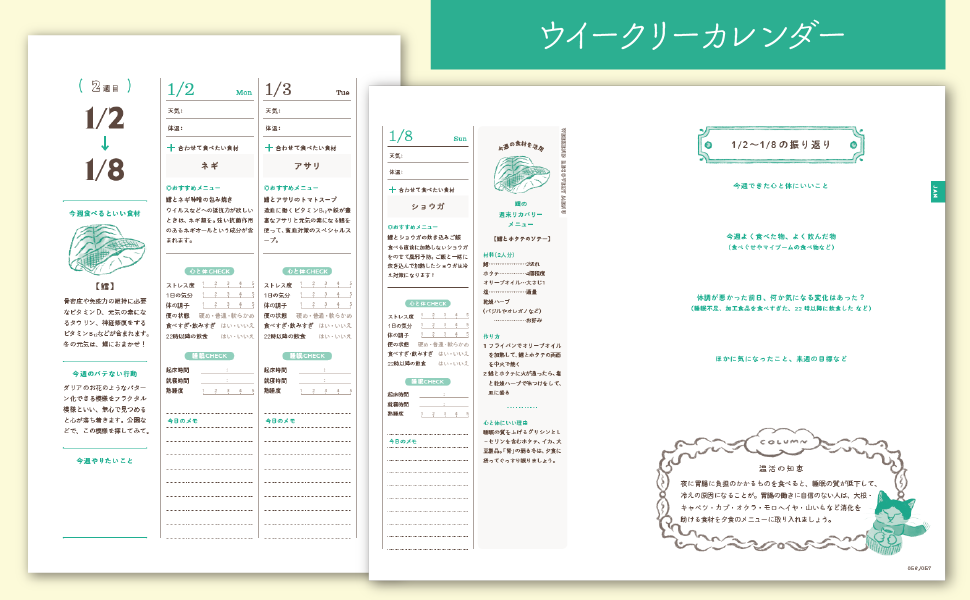 ウイークリーカレンダー
2週目
1/2
↓
1/8
今週食べるといい食材
【鱈】
骨密度や免疫力の維持に必要
なビタミンD、元気の素にな
るタウリン、神経修復をする
ビタミンB₁₂などが含まれます。
冬の元気は、鱈におまかせ！
今週のバテない行動
ダリアのお花のようなパター
ン化できる模様をフラクタル
模様といい、無心で見つめる
と心が落ち着きます。公園な
どで、この模様を探してみて。
今週やりたいこと
1/2 Mon
天気：
体温：
＋ 合わせて食べたい食材
ネギ
◎おすすめメニュー
鱈とネギ味噌の包み焼き
ウイルスなどへの抵抗力が欲しい
ときは、ネギ類を。強い抗菌作用
のあるネギオールという成分が含
まれます。
心と体CHECK
ストレス度 1 2 3 4 5
1日の気分 1 2 3 4 5
体の調子 1 2 3 4 5
便の状態 硬め・普通・軟らかめ
食べすぎ・飲みすぎ はい・いいえ
22時以降の飲食 はい・いいえ
睡眠CHECK
起床時間 ：
就寝時間 ：
熟睡度 1 2 3 4 5
今日のメモ
1/3 Tue
天気：
体温：
＋ 合わせて食べたい食材
アサリ
◎おすすめメニュー
鱈とアサリのトマトスープ
造血に働くビタミンB₁₂や鉄が豊
富なアサリと元気の素になる鱈を
使って、貧血対策のスペシャルス
ープ。
心と体CHECK
ストレス度 1 2 3 4 5
1日の気分 1 2 3 4 5
体の調子 1 2 3 4 5
便の状態 硬め・普通・軟らかめ
食べすぎ・飲みすぎ はい・いいえ
22時以降の飲食 はい・いいえ
睡眠CHECK
起床時間 ：
就寝時間 ：
熟睡度 1 2 3 4 5
今日のメモ
1/8 Sun
天気：
体温：
＋ 合わせて食べたい食材
ショウガ
◎おすすめメニュー
鱈とショウガの炊き込みご飯
食べる直前に加熱しないショウガ
をのせて風邪予防。ご飯と一緒に
炊き込んで加熱したショウガは冷
え対策になります！
心と体CHECK
ストレス度 1 2 3 4 5
1日の気分 1 2 3 4 5
体の調子 1 2 3 4 5
便の状態 硬め・普通・軟らかめ
食べすぎ・飲みすぎ はい・いいえ
22時以降の飲食 はい・いいえ
睡眠CHECK
起床時間 ：
就寝時間 ：
熟睡度 1 2 3 4 5
今日のメモ
今週の食材を活用
鱈の
週末リカバリー
メニュー
【鱈とホタテのソテー】
材料（2人分）
鱈……2切れ
ホタテ……4個程度
オリーブオイル…大さじ1
塩……適量
乾燥ハーブ
（バジルやオレガノなど）
……お好み
作り方
1 フライパンでオリーブオイル
を加熱して、鱈とホタテの両面
を中火で焼く
2 鱈とホタテに火が通ったら、塩
と乾燥ハーブで味つけをして、
皿に盛る
心と体にいい理由
睡眠の質を上げるグリシンとト
ーセリンを含むホタテ、イカ、大
豆製品。「腎」の弱る冬は、夕食に
摂ってぐっすり眠りましょう。
1/2〜1/8の振り返り
今週できた心と体にいいこと
今週よく食べた物、よく飲んだ物
（食べぐせやマイブームの食べ物など）
体調が悪かった前日、何か気になる変化はあった？
（睡眠不足、加工食品を食べすぎた、22時以降に飲食した など）
ほかに気になったこと、来週の目標など
JAN
COLUMN
温活の知恵
夜に胃腸に負担のかかるものを食べると、睡眠の質が低下して、
冷えの原因になることが。胃腸の働きに自信のない人は、大根・
キャベツ・カブ・オクラ・モロヘイヤ・山いもなど消化を
助ける食材を夕食のメニューに取り入れましょう。
056/057